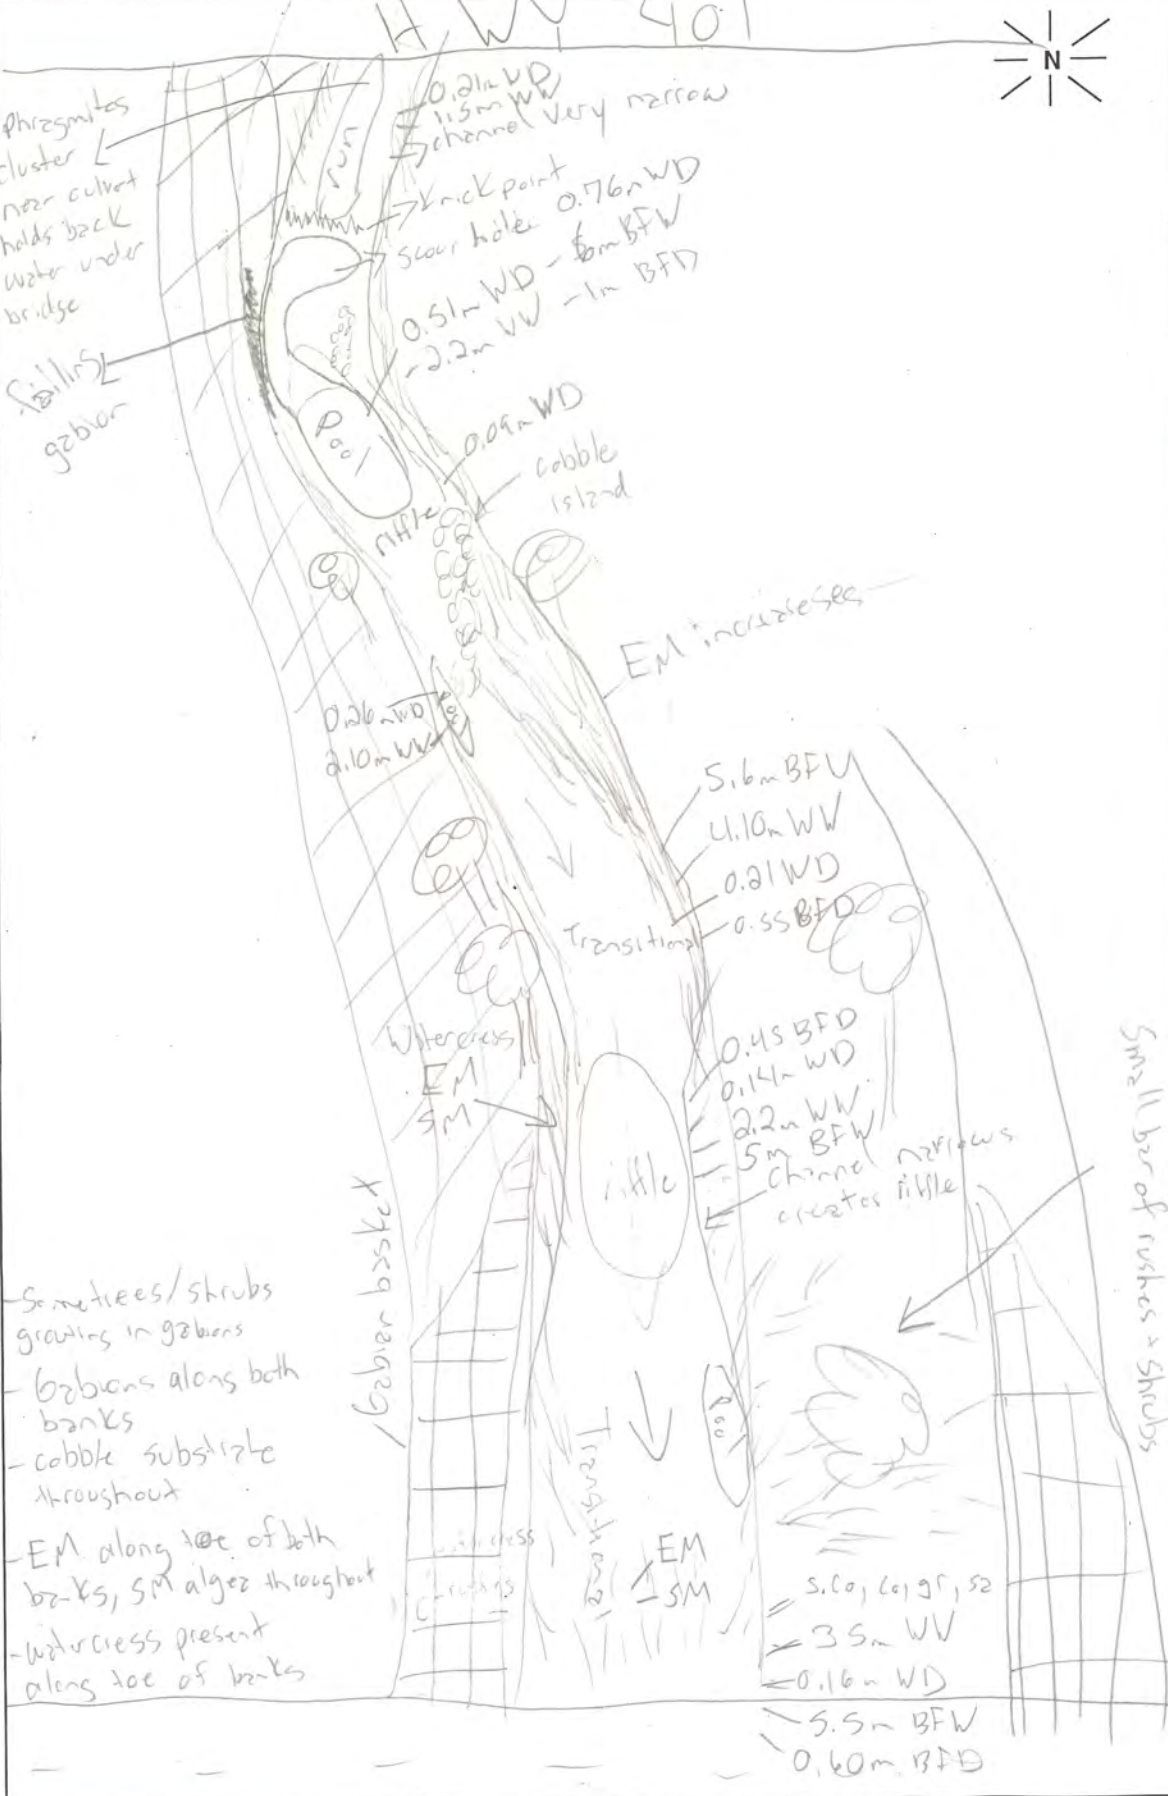 HWY 401
N
Phragmites
cluster
near culvert
holds back
water under
bridge
failing
gabion
run
0.21m WD
1.5m WW
channel very narrow
knick point
scour hole 0.76m WD
0.51m WD - 6m BFW
-2.2m WW -1m BFD
Pool
0.09m WD
cobble
island
riffle
EM increases
0.26m WD
2.10m WW
Pool
5.6m BFW
4.10m WW
0.21 WD
0.55 BFD
Transitional
Watercress
EM
SM
0.45 BFD
0.14m WD
2.2m WW
5m BFW
Channel narrows
creates riffle
riffle
Small bar of rushes + shrubs
Gabion basket
- Some trees/shrubs
growing in gabions
- Gabions along both
banks
- cobble substrate
throughout
- EM along toe of both
banks, SM algea throughout
- watercress present
along toe of banks
Pool
Transitional
EM
SM
s.co, co, gr, sa
0.16m WD
5.5m BFW
0.60m BFD